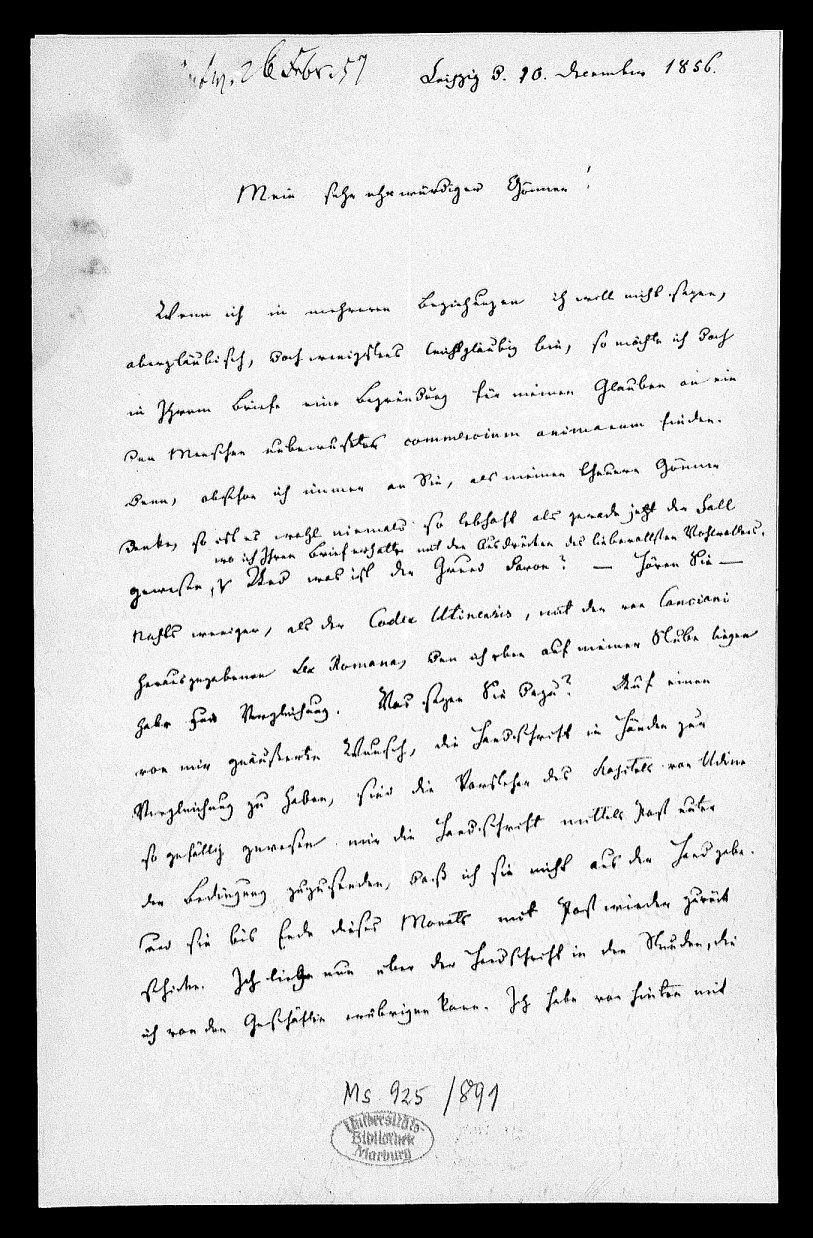 Antw. 26 Febr. 57
Leipzig d. 10. December 1856.
Mein sehr ehrwürdiger Gönner!
Wenn ich in mehreren Beziehungen ich will nicht sagen,
abergläubisch, doch wenigstens leichtgläubig bin, so möchte ich doch
in Ihrem Briefe eine Begründung für meinen Glauben an ein
den Menschen unbewußtes commercium animarum finden.
Denn, obschon ich immer an Sie, als meinen theuren Gönner
denke, so ist es wohl niemals so lebhaft als gerade jetzt der Fall
wo ich Ihren Brief erhalte mit den Ausdrücken des liebevollsten Wohlwollens.
gewesen, Und was ist der Grund davon? — Hören Sie —
Nichts weniger, als der Codex Utinensis, mit der von Canciani
herausgegebenen Lex Romana, den ich eben auf meiner Stube liegen
habe zur Vergleichung. Was sagen Sie dazu? Auf einen
von mir geäußerten Wunsch, die Handschrift in Händen zur
Vergleichung zu haben, sind die Vorsteher des Kapitels von Udine
so gefällig gewesen mir die Handschrift mittels Post unter
der Bedingung zuzusenden, daß ich sie nicht aus der Hand gebe.
und sie bis Ende dieses Monats mit Post wieder zurück
schicke. Ich liege nun über der Handschrift in den Stunden, die
ich von den Geschäften erübrigen kann. Ich habe von hinten mit
Ms 925/891
Universitäts-
Bibliothek
Marburg